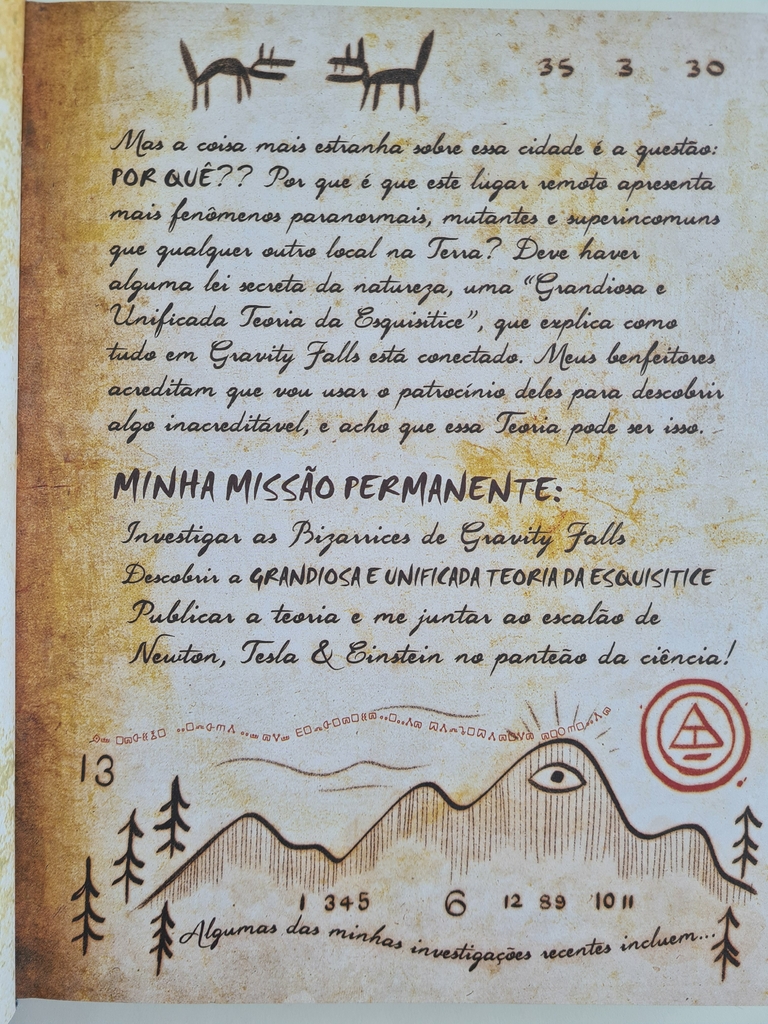 35 3 30
Mas a coisa mais estranha sobre essa cidade é a questão:
POR QUÊ?? Por que é que este lugar remoto apresenta
mais fenômenos paranormais, mutantes e superincomuns
que qualquer outro local na Terra? Deve haver
alguma lei secreta da natureza, uma “Grandiosa e
Unificada Teoria da Esquisitice”, que explica como
tudo em Gravity Falls está conectado. Meus benfeitores
acreditam que vou usar o patrocínio deles para descobrir
algo inacreditável, e acho que essa Teoria pode ser isso.
MINHA MISSÃO PERMANENTE:
Investigar as Bizarrices de Gravity Falls
Descobrir a GRANDIOSA E UNIFICADA TEORIA DA ESQUISITICE
Publicar a teoria e me juntar ao escalão de
Newton, Tesla & Einstein no panteão da ciência!
13
1 345 6 12 89 10 11
Algumas das minhas investigações recentes incluem...